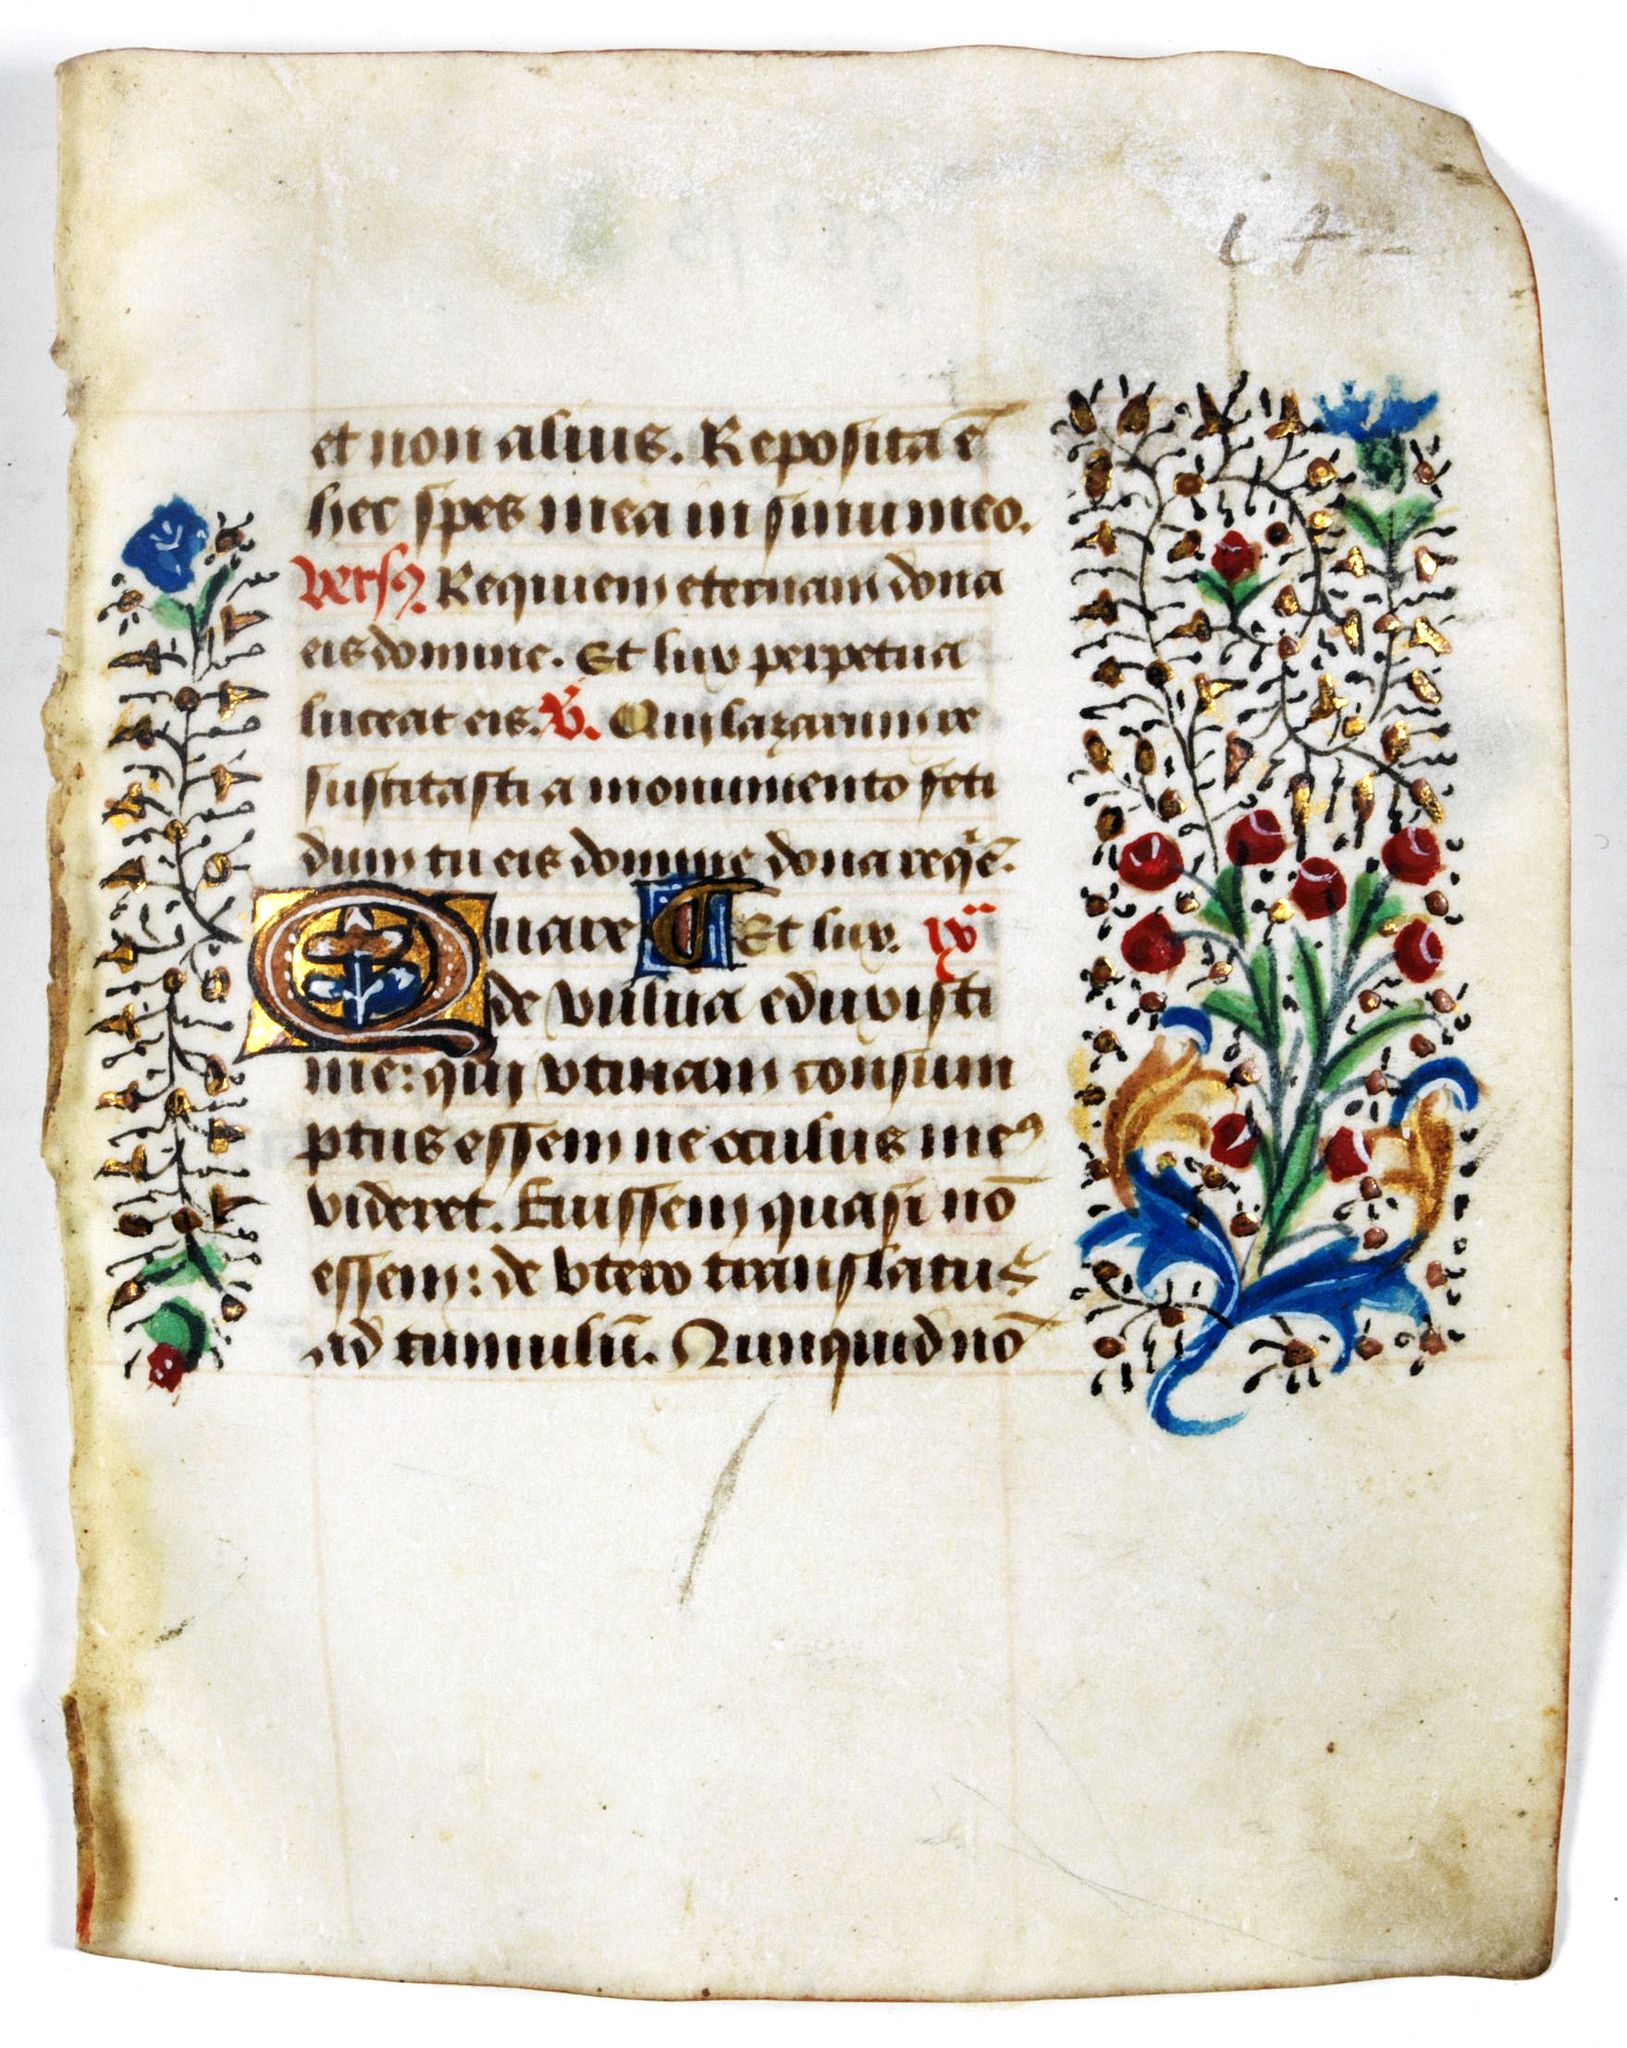 i4
et non alius. Reposita ē
hec spes mea in sinu meo.
Versꝰ. Requiem eternam dona
eis domine. Et lux perpetua
luceat eis. ℣. Qui lazarum re
suscitasti a monumento feti
dum tu eis domine dona reqͥē.
Quare Et lux. ix
de vulua eduxisti
me: qui vtinam consum
ptus essem ne oculus meꝰ
videret. Fuissem quasi nō
essem: de vtero translatus
ad tumulū. Nunquid nō